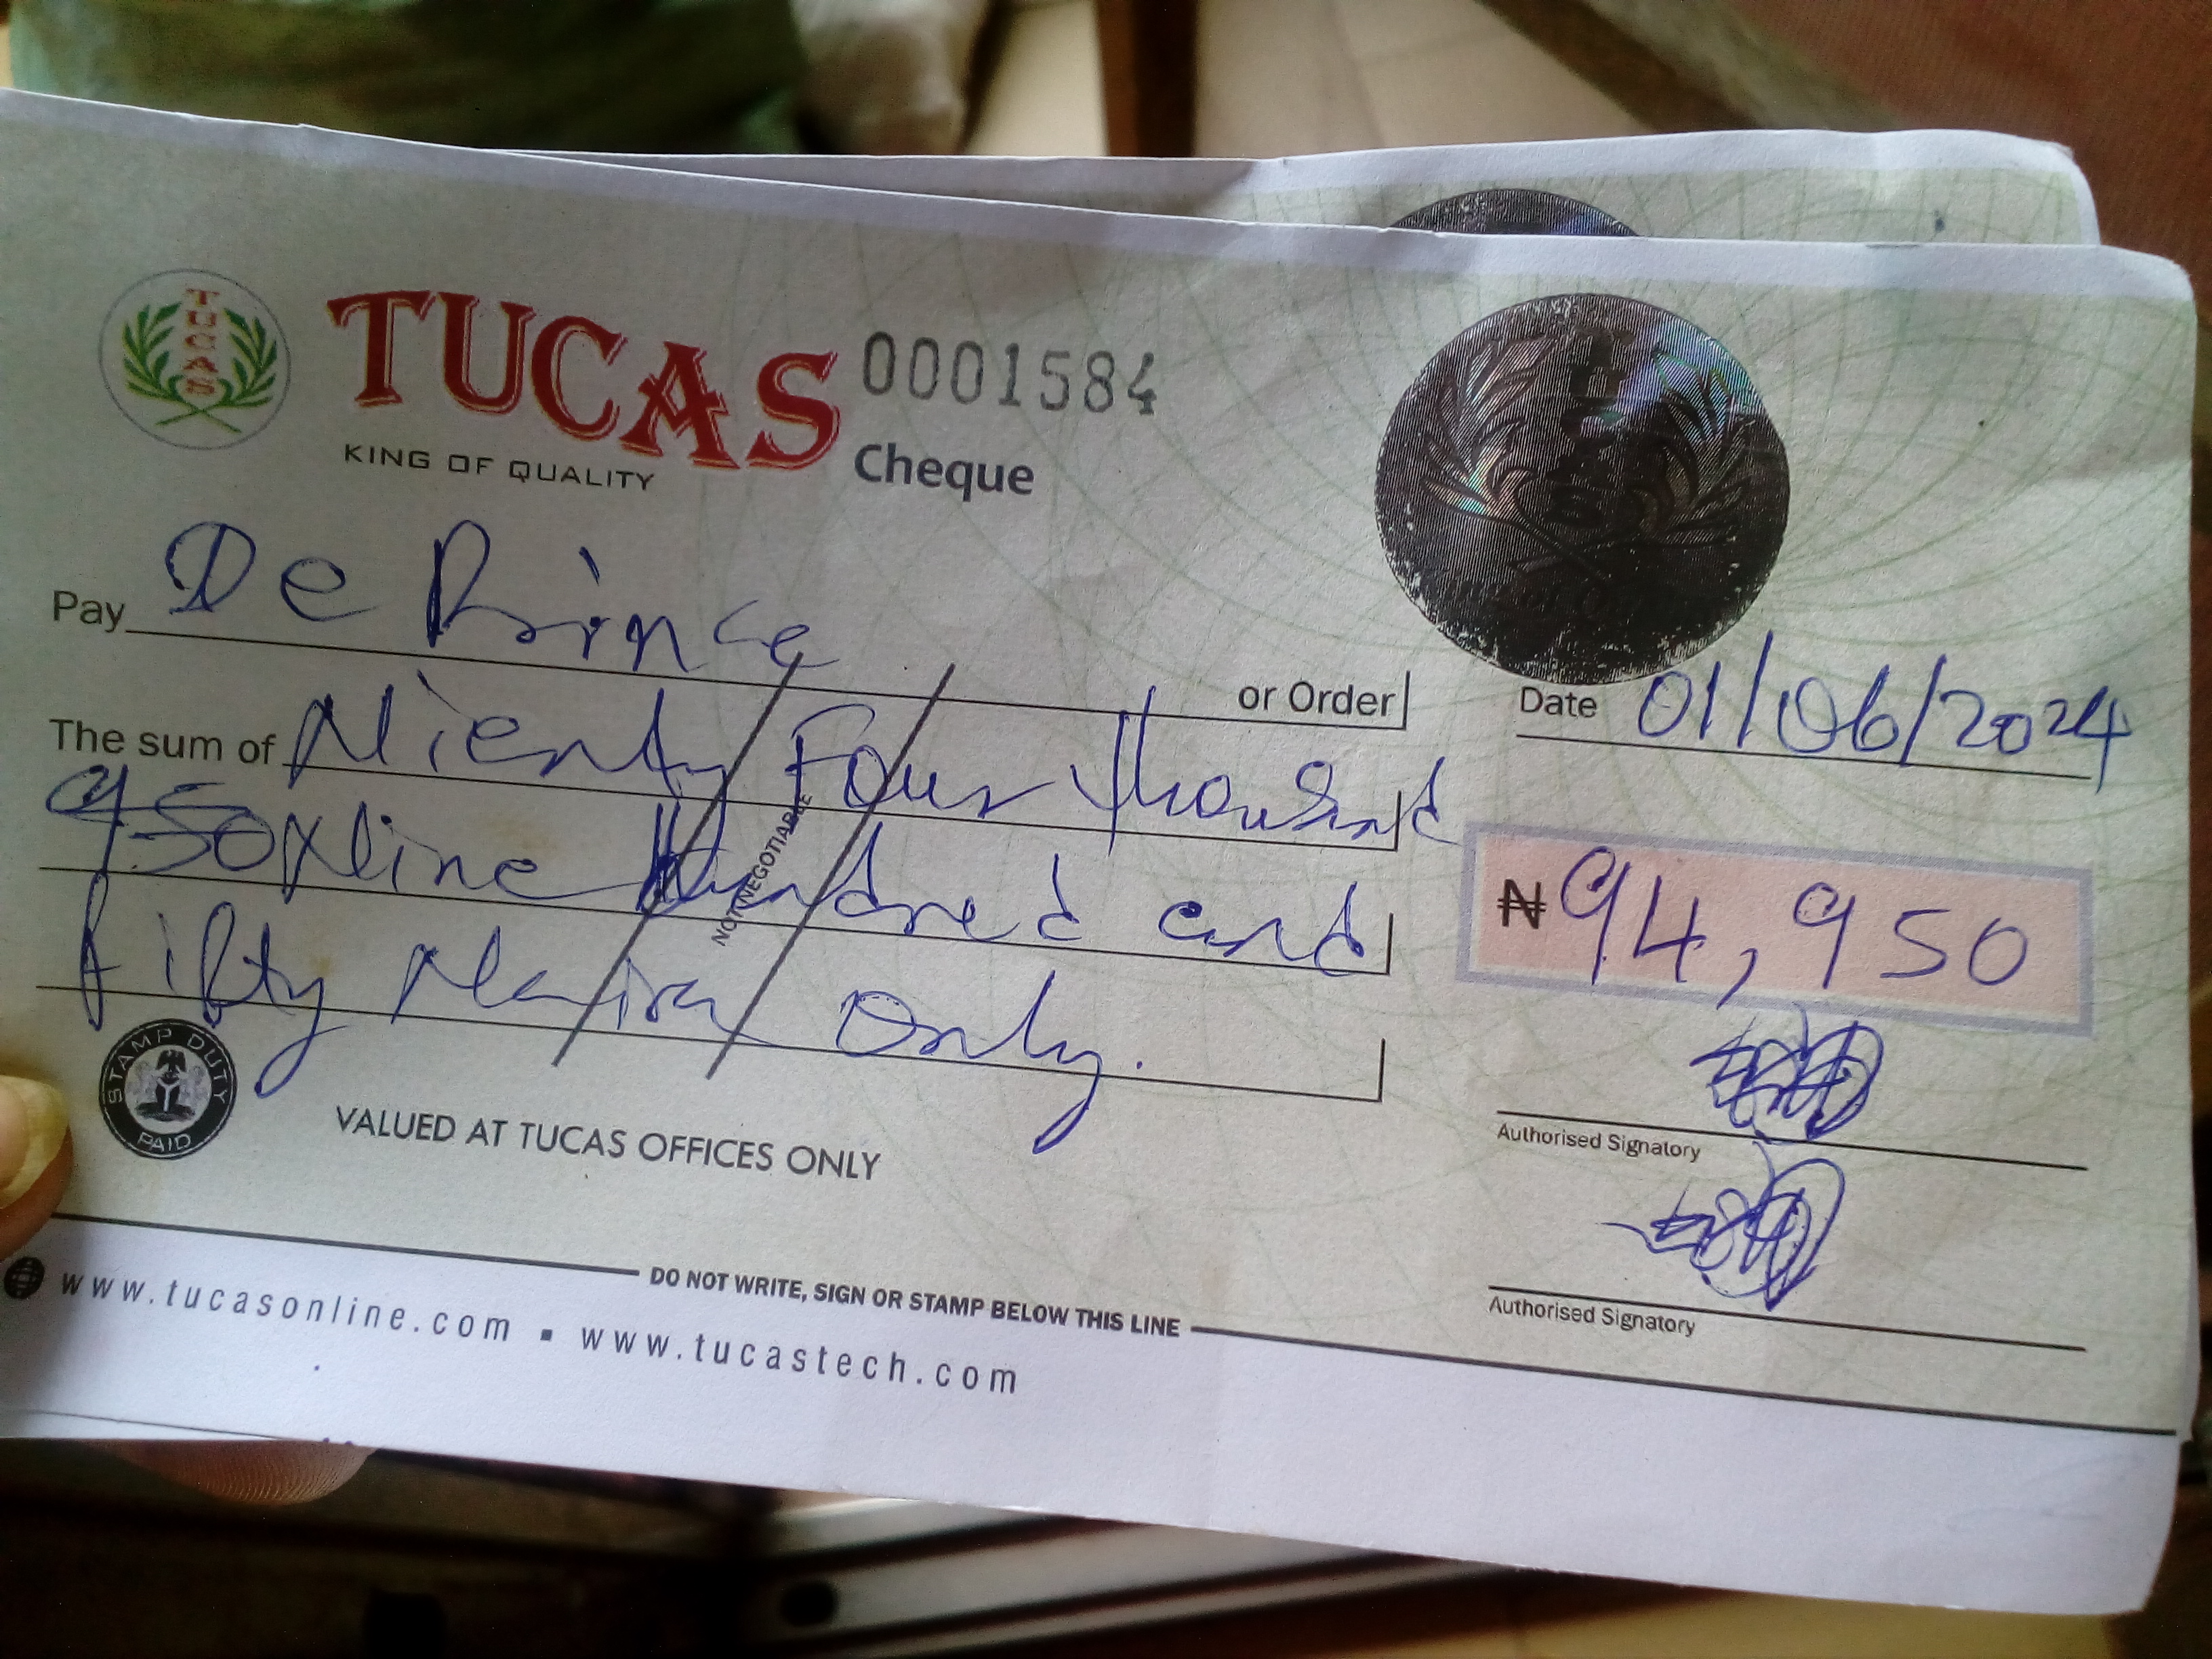 TUCAS
TUCAS 0001584
KING OF QUALITY Cheque
Pay De Prince or Order
Date 01/06/2024
The sum of Nienty Four thousand
950 Nine Hundred and
fifty Naira Only.
₦94,950
NOT NEGOTIABLE
STAMP DUTY PAID
VALUED AT TUCAS OFFICES ONLY
Authorised Signatory
Authorised Signatory
DO NOT WRITE, SIGN OR STAMP BELOW THIS LINE
www.tucasonline.com ▪ www.tucastech.com